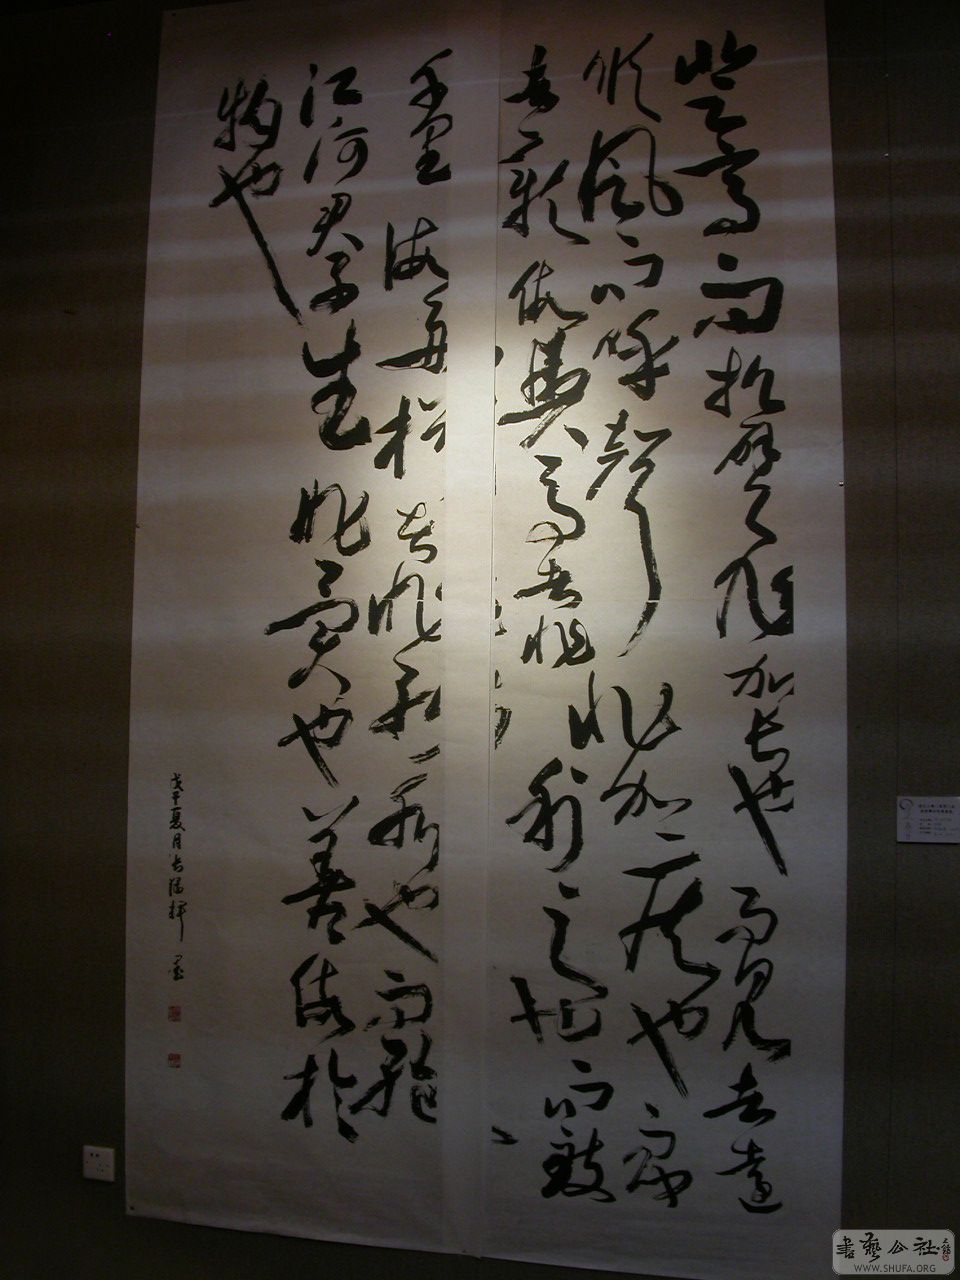 登高而招臂非加長也而見者遠
順風而呼聲非加疾也而聞
者彰假輿馬者非利足也而致
千里假舟楫者非能水也而絕
江河君子生非異也善假於
物也
戊子夏月
書藝公社
WWW.SHUFA.ORG